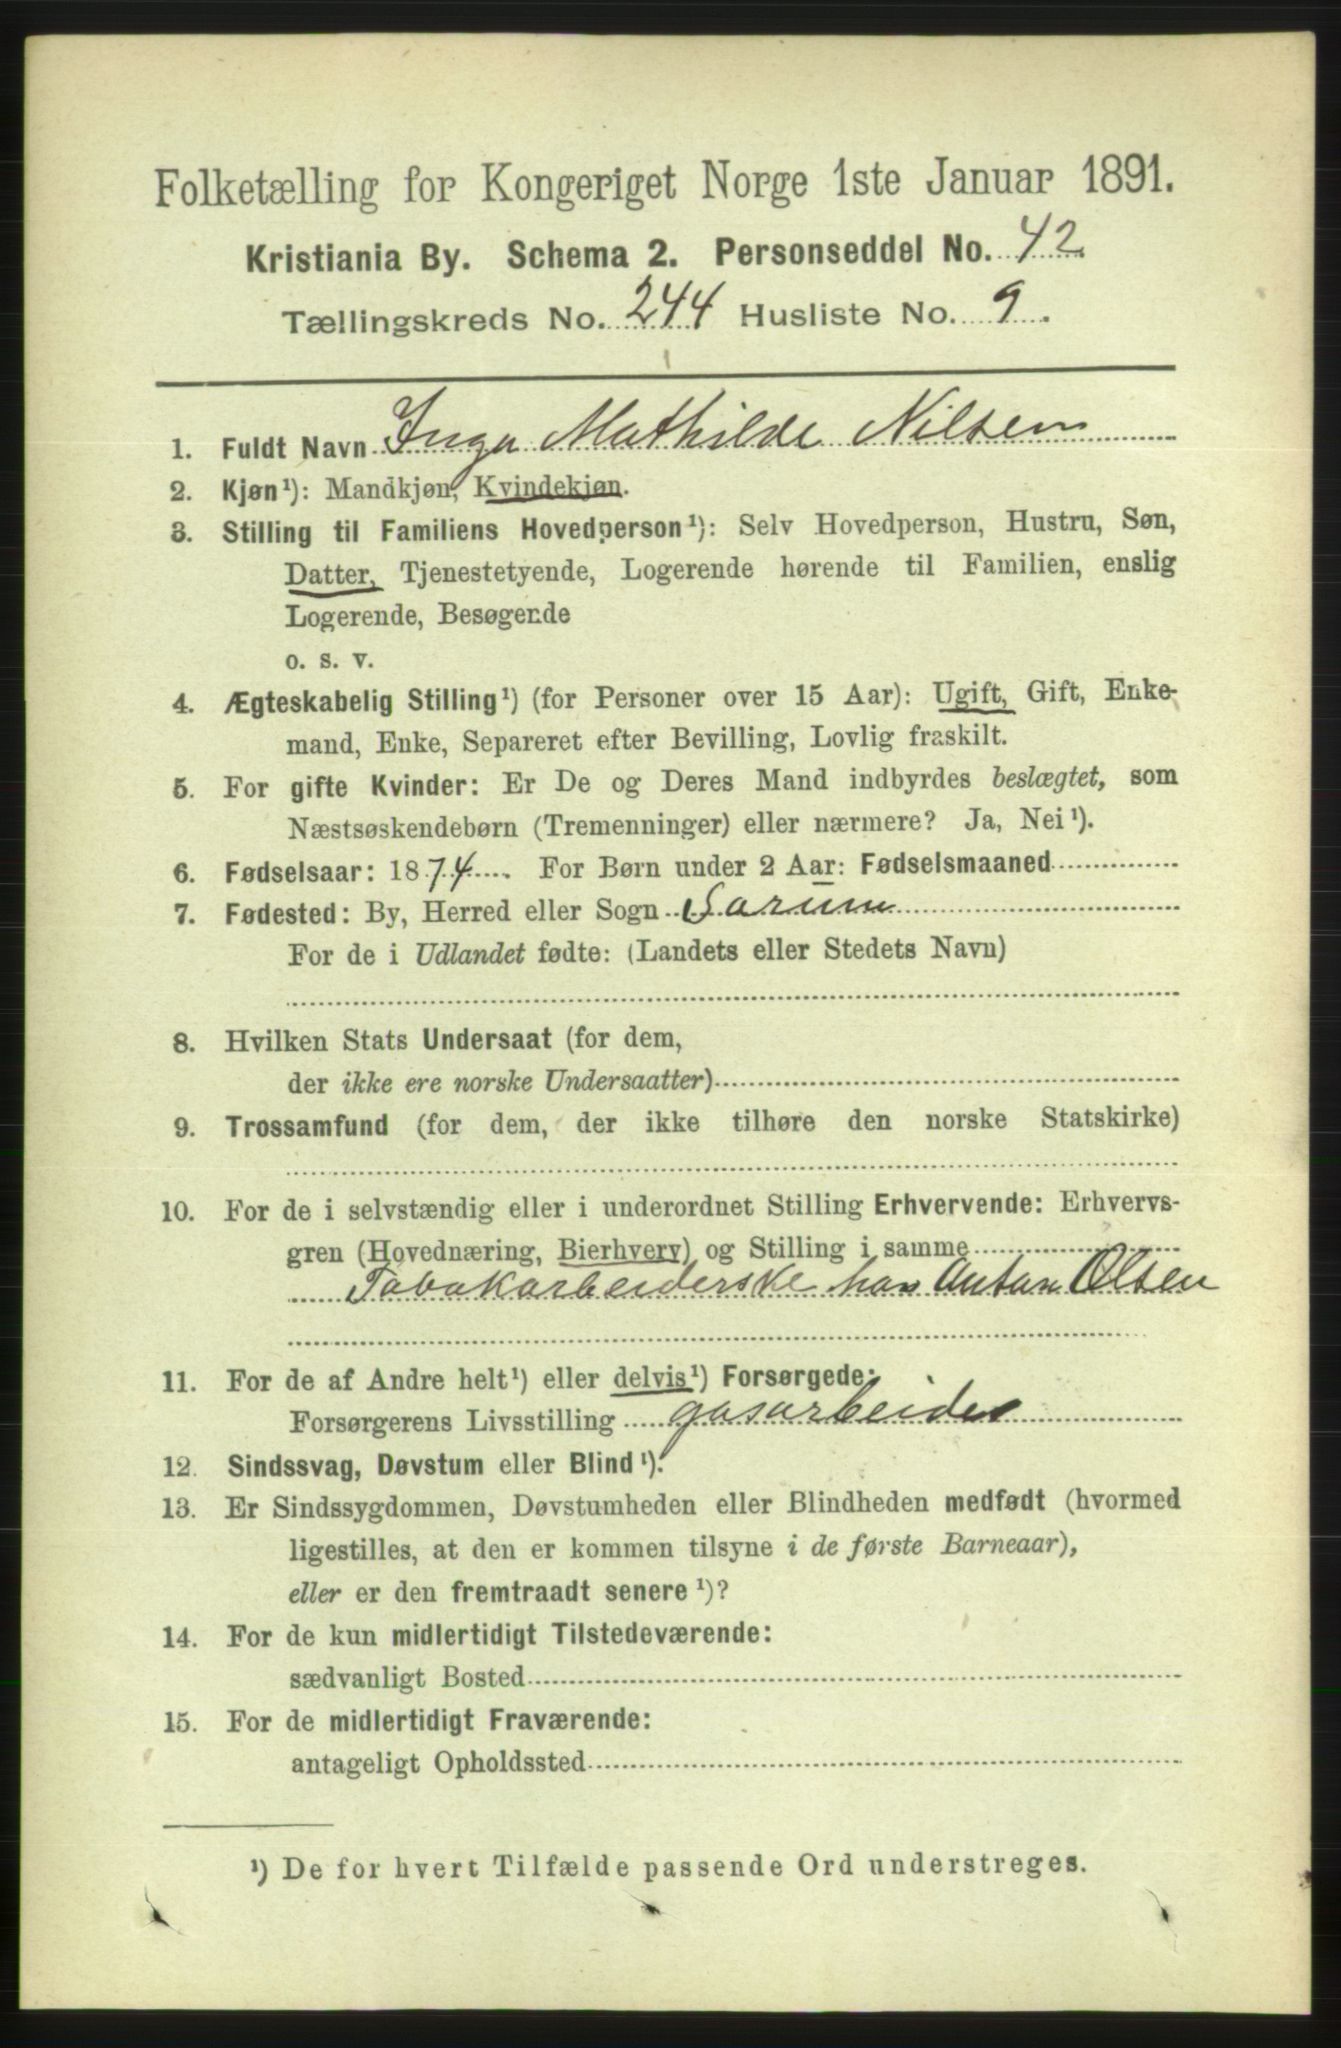 Folketælling for Kongeriget Norge 1ste Januar 1891.
Kristiania By. Schema 2. Personseddel No. 42
Tællingskreds No. 244 Husliste No. 9.
1. Fuldt Navn Inga Mathilde Nilsen
2. Kjøn¹): Mandkjøn, Kvindekjøn.
3. Stilling til Familiens Hovedperson¹): Selv Hovedperson, Hustru, Søn,
Datter, Tjenestetyende, Logerende hørende til Familien, enslig
Logerende, Besøgende
o. s. v.
4. Ægteskabelig Stilling¹) (for Personer over 15 Aar): Ugift, Gift, Enke-
mand, Enke, Separeret efter Bevilling, Lovlig fraskilt.
5. For gifte Kvinder: Er De og Deres Mand indbyrdes beslægtet, som
Næstsøskendebørn (Tremenninger) eller nærmere? Ja, Nei¹).
6. Fødselsaar: 1874. For Børn under 2 Aar: Fødselsmaaned
7. Fødested: By, Herred eller Sogn Sørum
For de i Udlandet fødte: (Landets eller Stedets Navn)
8. Hvilken Stats Undersaat (for dem,
der ikke ere norske Undersaatter)
9. Trossamfund (for dem, der ikke tilhøre den norske Statskirke)
10. For de i selvstændig eller i underordnet Stilling Erhvervende: Erhvervs-
gren (Hovednæring, Bierhverv) og Stilling i samme
Tobakarbeiderske hos Anton Olsen
11. For de af Andre helt¹) eller delvis¹) Forsørgede:
Forsørgerens Livsstilling gasarbeider
12. Sindssvag, Døvstum eller Blind¹).
13. Er Sindssygdommen, Døvstumheden eller Blindheden medfødt (hvormed
ligestilles, at den er kommen tilsyne i de første Barneaar),
eller er den fremtraadt senere¹)?
14. For de kun midlertidigt Tilstedeværende:
sædvanligt Bosted
15. For de midlertidigt Fraværende:
antageligt Opholdssted
¹) De for hvert Tilfælde passende Ord understreges.